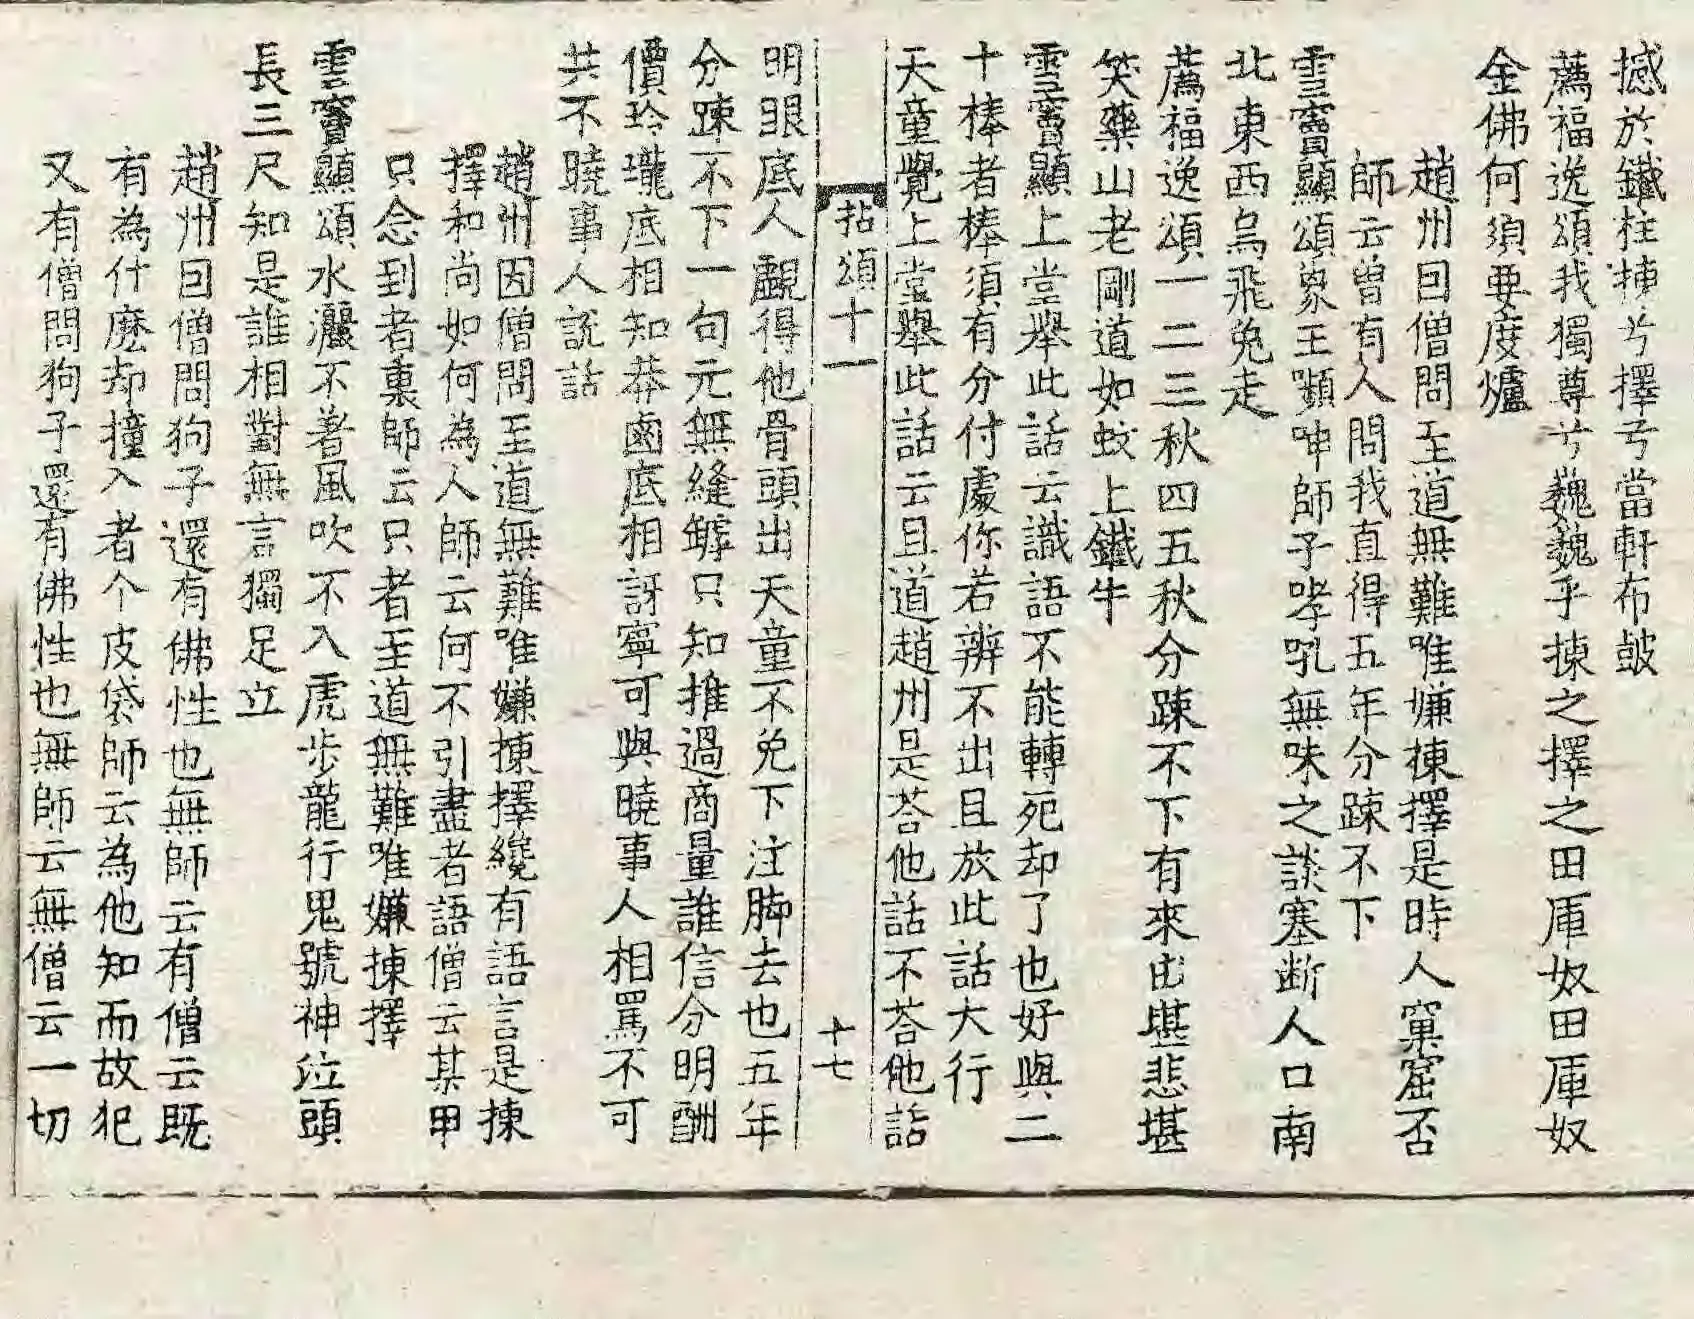 撼於鐵柱揀兮擇兮當軒布皷
薦福逸頌我獨尊兮巍巍乎揀之擇之田厙奴田厙奴
金佛何須要度爐
趙州因僧問至道無難唯嫌揀擇是時人窠窟否
師云曽有人問我直得五年分踈不下
雪竇顯頌象王嚬呻師子哮吼無味之談塞断人口南
北東西烏飛兔走
薦福逸頌一二三秋四五秋分踈不下有來由堪悲堪
笑藥山老剛道如蚊上鐵牛
雪竇顯上堂舉此話云識語不能轉死却了也好與二
十棒者棒須有分付處你若辨不出且放此話大行
天童覺上堂舉此話云且道趙州是荅他話不荅他話
拈頌十一
十七
明眼底人覷得他骨頭出天童不免下注脚去也五年
分踈不下一句元無縫罅只知推過商量誰信分明酬
價玲瓏底相知莾鹵底相訝寧可與曉事人相罵不可
共不曉事人說話
趙州因僧問至道無難唯嫌揀擇纔有語言是揀
擇和尚如何為人師云何不引盡者語僧云某甲
只念到者裏師云只者至道無難唯嫌揀擇
雪竇顯頌水灑不著風吹不入虎步龍行鬼號神泣頭
長三尺知是誰相對無言獨足立
趙州因僧問狗子還有佛性也無師云有僧云既
有為什麽却撞入者个皮袋師云為他知而故犯
又有僧問狗子還有佛性也無師云無僧云一切